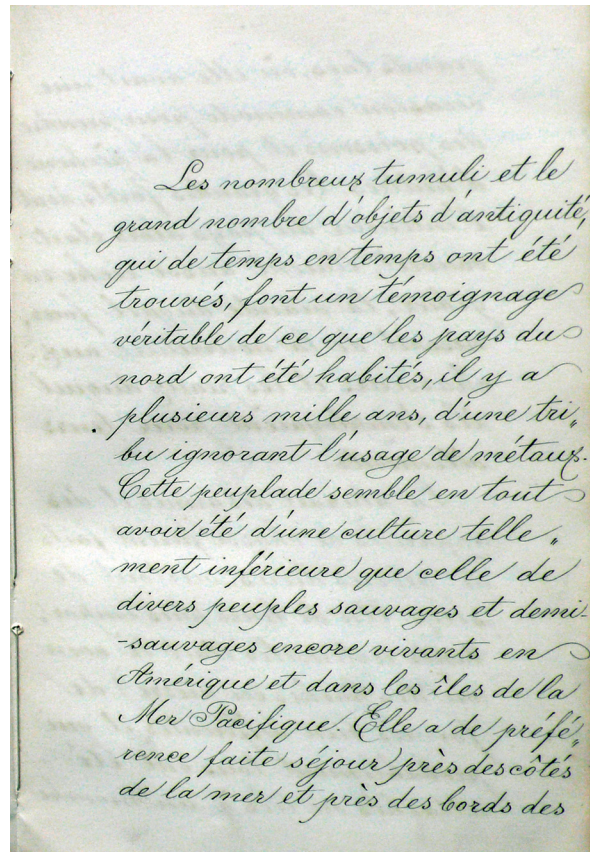 Les nombreux tumuli et le
grand nombre d'objets d'antiquité,
qui de temps en temps ont été
trouvés, font un témoignage
véritable de ce que les pays du
nord ont été habités, il y a
plusieurs mille ans, d'une tri„
bu ignorant l'usage de métaux.
Cette peuplade semble en tout
avoir été d'une culture telle„
ment inférieure que celle de
divers peuples sauvages et demi-
-sauvages encore vivants en
Amérique et dans les îles de la
Mer Pacifique. Elle a de préfé„
rence faite séjour près des côtés
de la mer et près des bords des